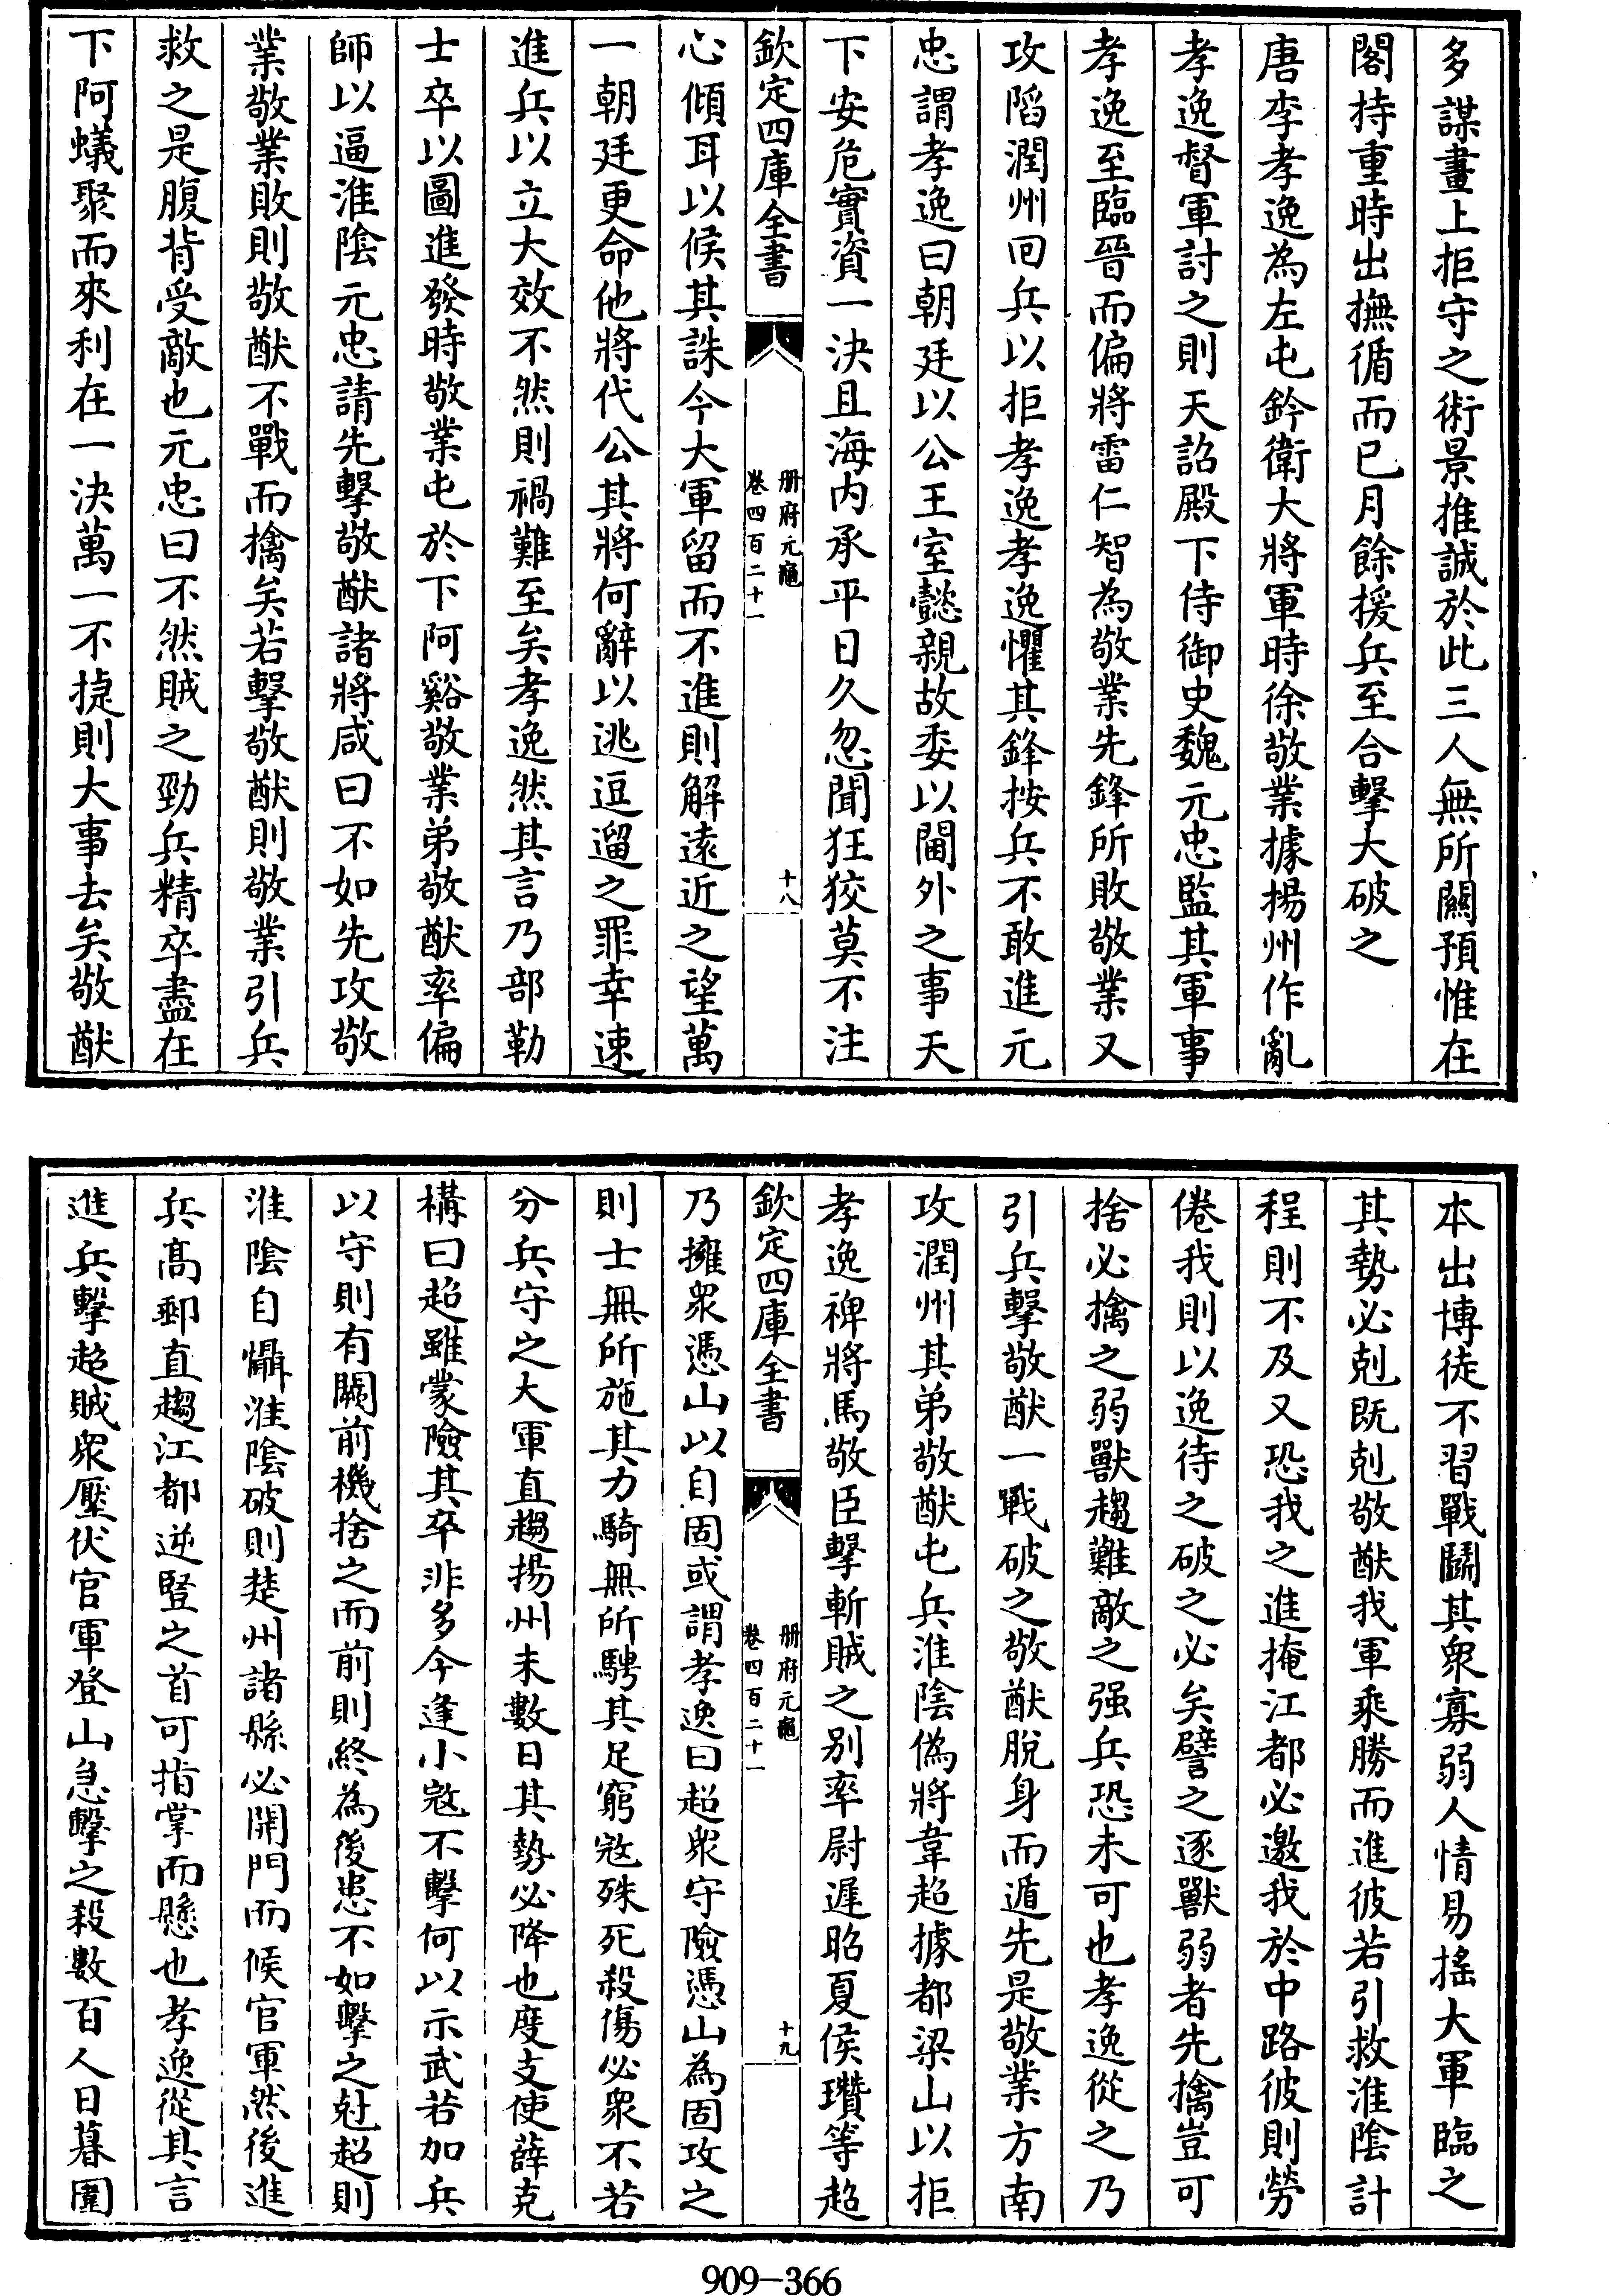 多謀畫上拒守之術景推誠於此三人無所關預惟在
閣持重時出撫循而已月餘援兵至合擊大破之
唐李孝逸為左屯鈐衛大將軍時徐敬業據揚州作亂
孝逸督軍討之則天詔殿下侍御史魏元忠監其軍事
孝逸至臨晉而偏將雷仁智為敬業先鋒所敗敬業又
攻陷潤州回兵以拒孝逸孝逸懼其鋒按兵不敢進元
忠謂孝逸曰朝廷以公王室懿親故委以閫外之事天
下安危實資一決且海內承平日久忽聞狂狡莫不注
欽定四庫全書
册府元龜
卷四百二十一
十八
心傾耳以候其誅今大軍留而不進則解遠近之望萬
一朝廷更命他將代公其將何辭以逃逗遛之罪幸速
進兵以立大效不然則禍難至矣孝逸然其言乃部勒
士卒以圖進發時敬業屯於下阿谿敬業弟敬猷率偏
師以逼淮陰元忠請先擊敬猷諸將咸曰不如先攻敬
業敬業敗則敬猷不戰而擒矣若擊敬猷則敬業引兵
救之是腹背受敵也元忠曰不然賊之勁兵精卒盡在
下阿蟻聚而來利在一決萬一不捷則大事去矣敬猷
本出博徒不習戰鬭其衆寡弱人情易搖大軍臨之
其勢必剋既剋敬猷我軍乘勝而進彼若引救淮陰計
程則不及又恐我之進掩江都必邀我於中路彼則勞
倦我則以逸待之破之必矣譬之逐獸弱者先擒豈可
捨必擒之弱獸趨難敵之强兵恐未可也孝逸從之乃
引兵擊敬猷一戰破之敬猷脫身而遁先是敬業方南
攻潤州其弟敬猷屯兵淮陰偽將韋超據都梁山以拒
孝逸裨將馬敬臣擊斬賊之别率尉遲昭夏侯瓚等超
欽定四庫全書
册府元龜
卷四百二十一
十九
乃擁衆憑山以自固或謂孝逸曰超衆守險憑山為固攻之
則士無所施其力騎無所騁其足窮寇殊死殺傷必衆不若
分兵守之大軍直趨揚州未數日其勢必降也度支使薛克
構曰超雖蒙險其卒非多今逢小寇不擊何以示武若加兵
以守則有闕前機捨之而前則終為後患不如擊之尅超則
淮陰自懾淮陰破則楚州諸縣必開門而候官軍然後進
兵高郵直趨江都逆豎之首可指掌而懸也孝逸從其言
進兵擊超賊衆壓伏官軍登山急擊之殺數百人日暮圍
909-366